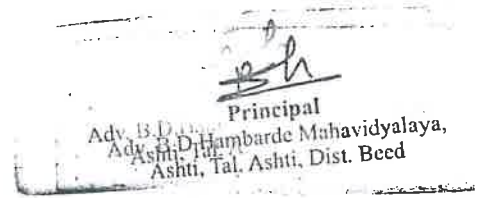 Principal
Adv. B.D.
Adv. B.D. Hambarde Mahavidyalaya,
Ashti, Tal.
Ashti, Tal. Ashti, Dist. Beed